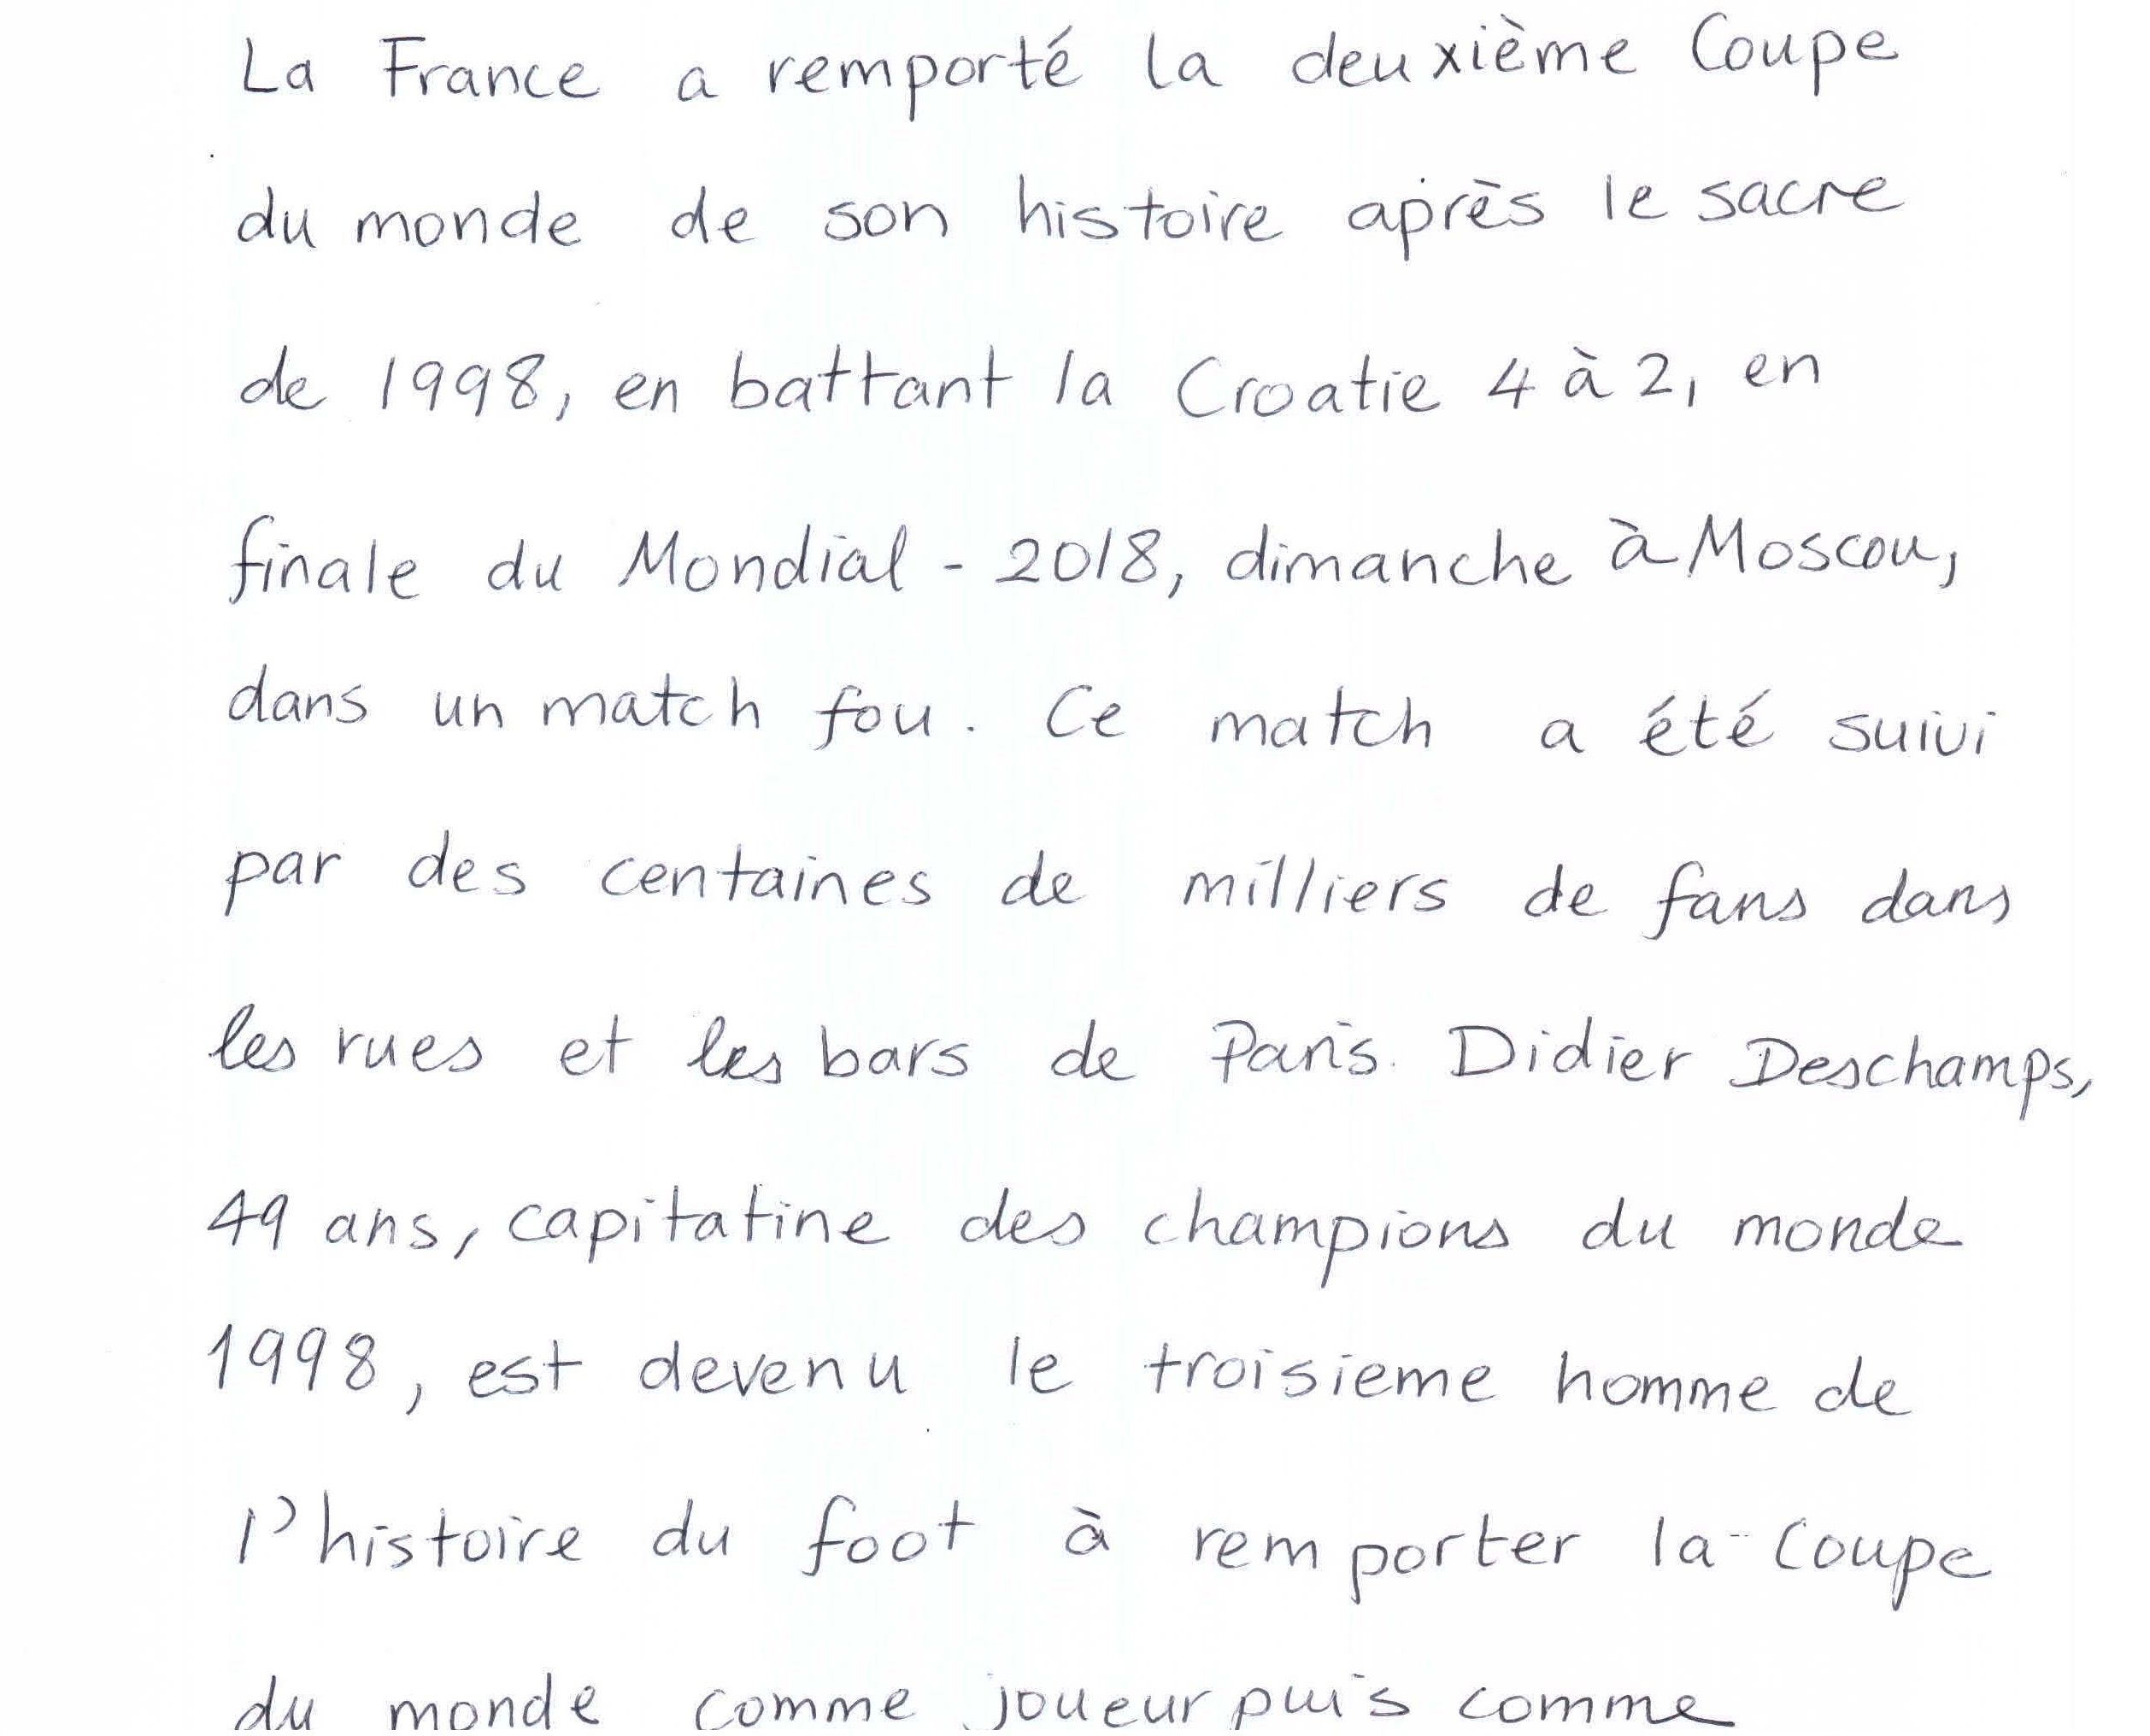 La France a remporté la deuxième Coupe
du monde de son histoire après le sacre
de 1998, en battant la Croatie 4 à 2, en
finale du Mondial - 2018, dimanche à Moscou,
dans un match fou. Ce match a été suivi
par des centaines de milliers de fans dans
les rues et les bars de Paris. Didier Deschamps,
49 ans, capitatine des champions du monde
1998, est devenu le troisieme homme de
l'histoire du foot à remporter la coupe
du monde comme joueur puis comme